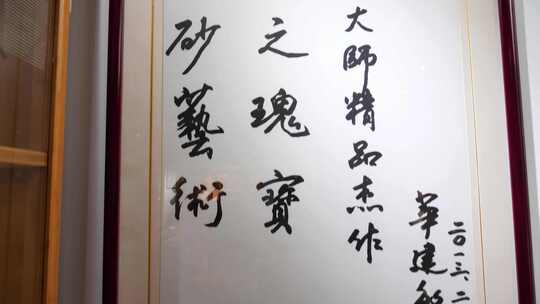 砂藝術
之瑰寶
大師精品杰作
華建
二〇一三.二